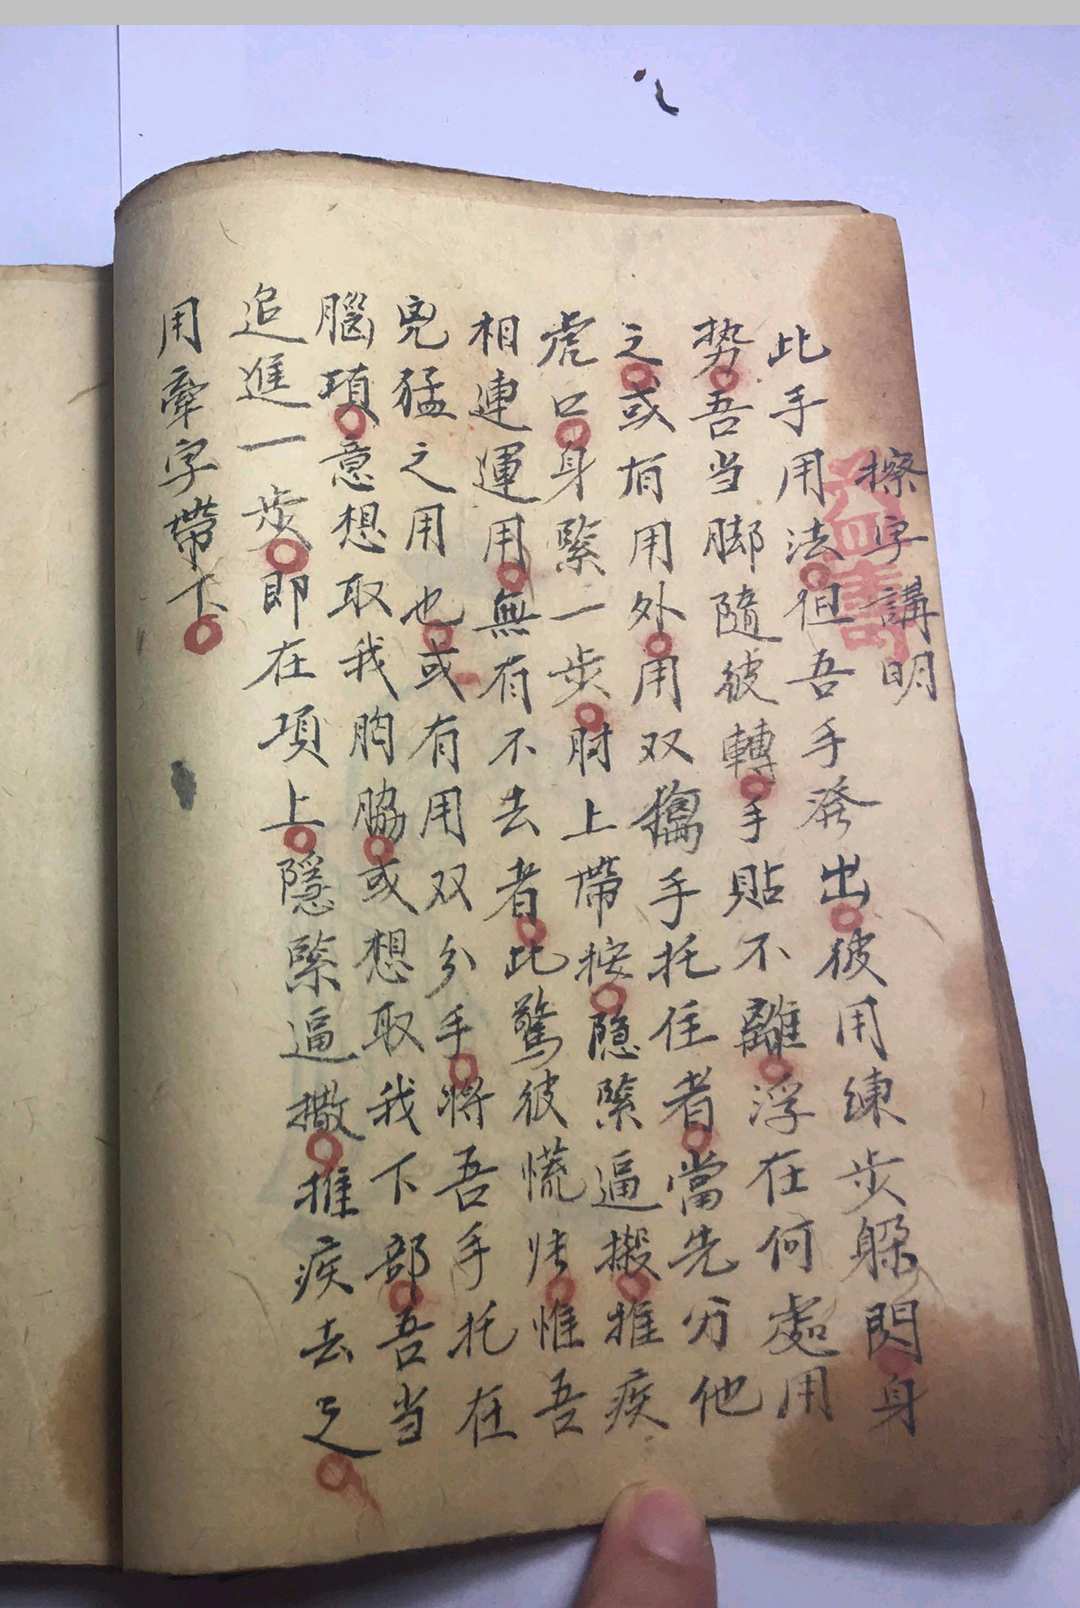 擦字講明
此手用法但吾手發出彼用練步躲閃身
势吾当脚隨彼轉手貼不離浮在何處用
之或有用外用双擒手托住者當先分他
虎口身緊一步肘上帶按隐緊逼搬推疾
相連運用無有不去者此驚彼慌怯惟吾
兇猛之用也或有用双分手將吾手托在
腦項意想取我胸脇或想取我下部吾当
追進一步即在項上隱緊逼撒推疾去之
用牽字帶下